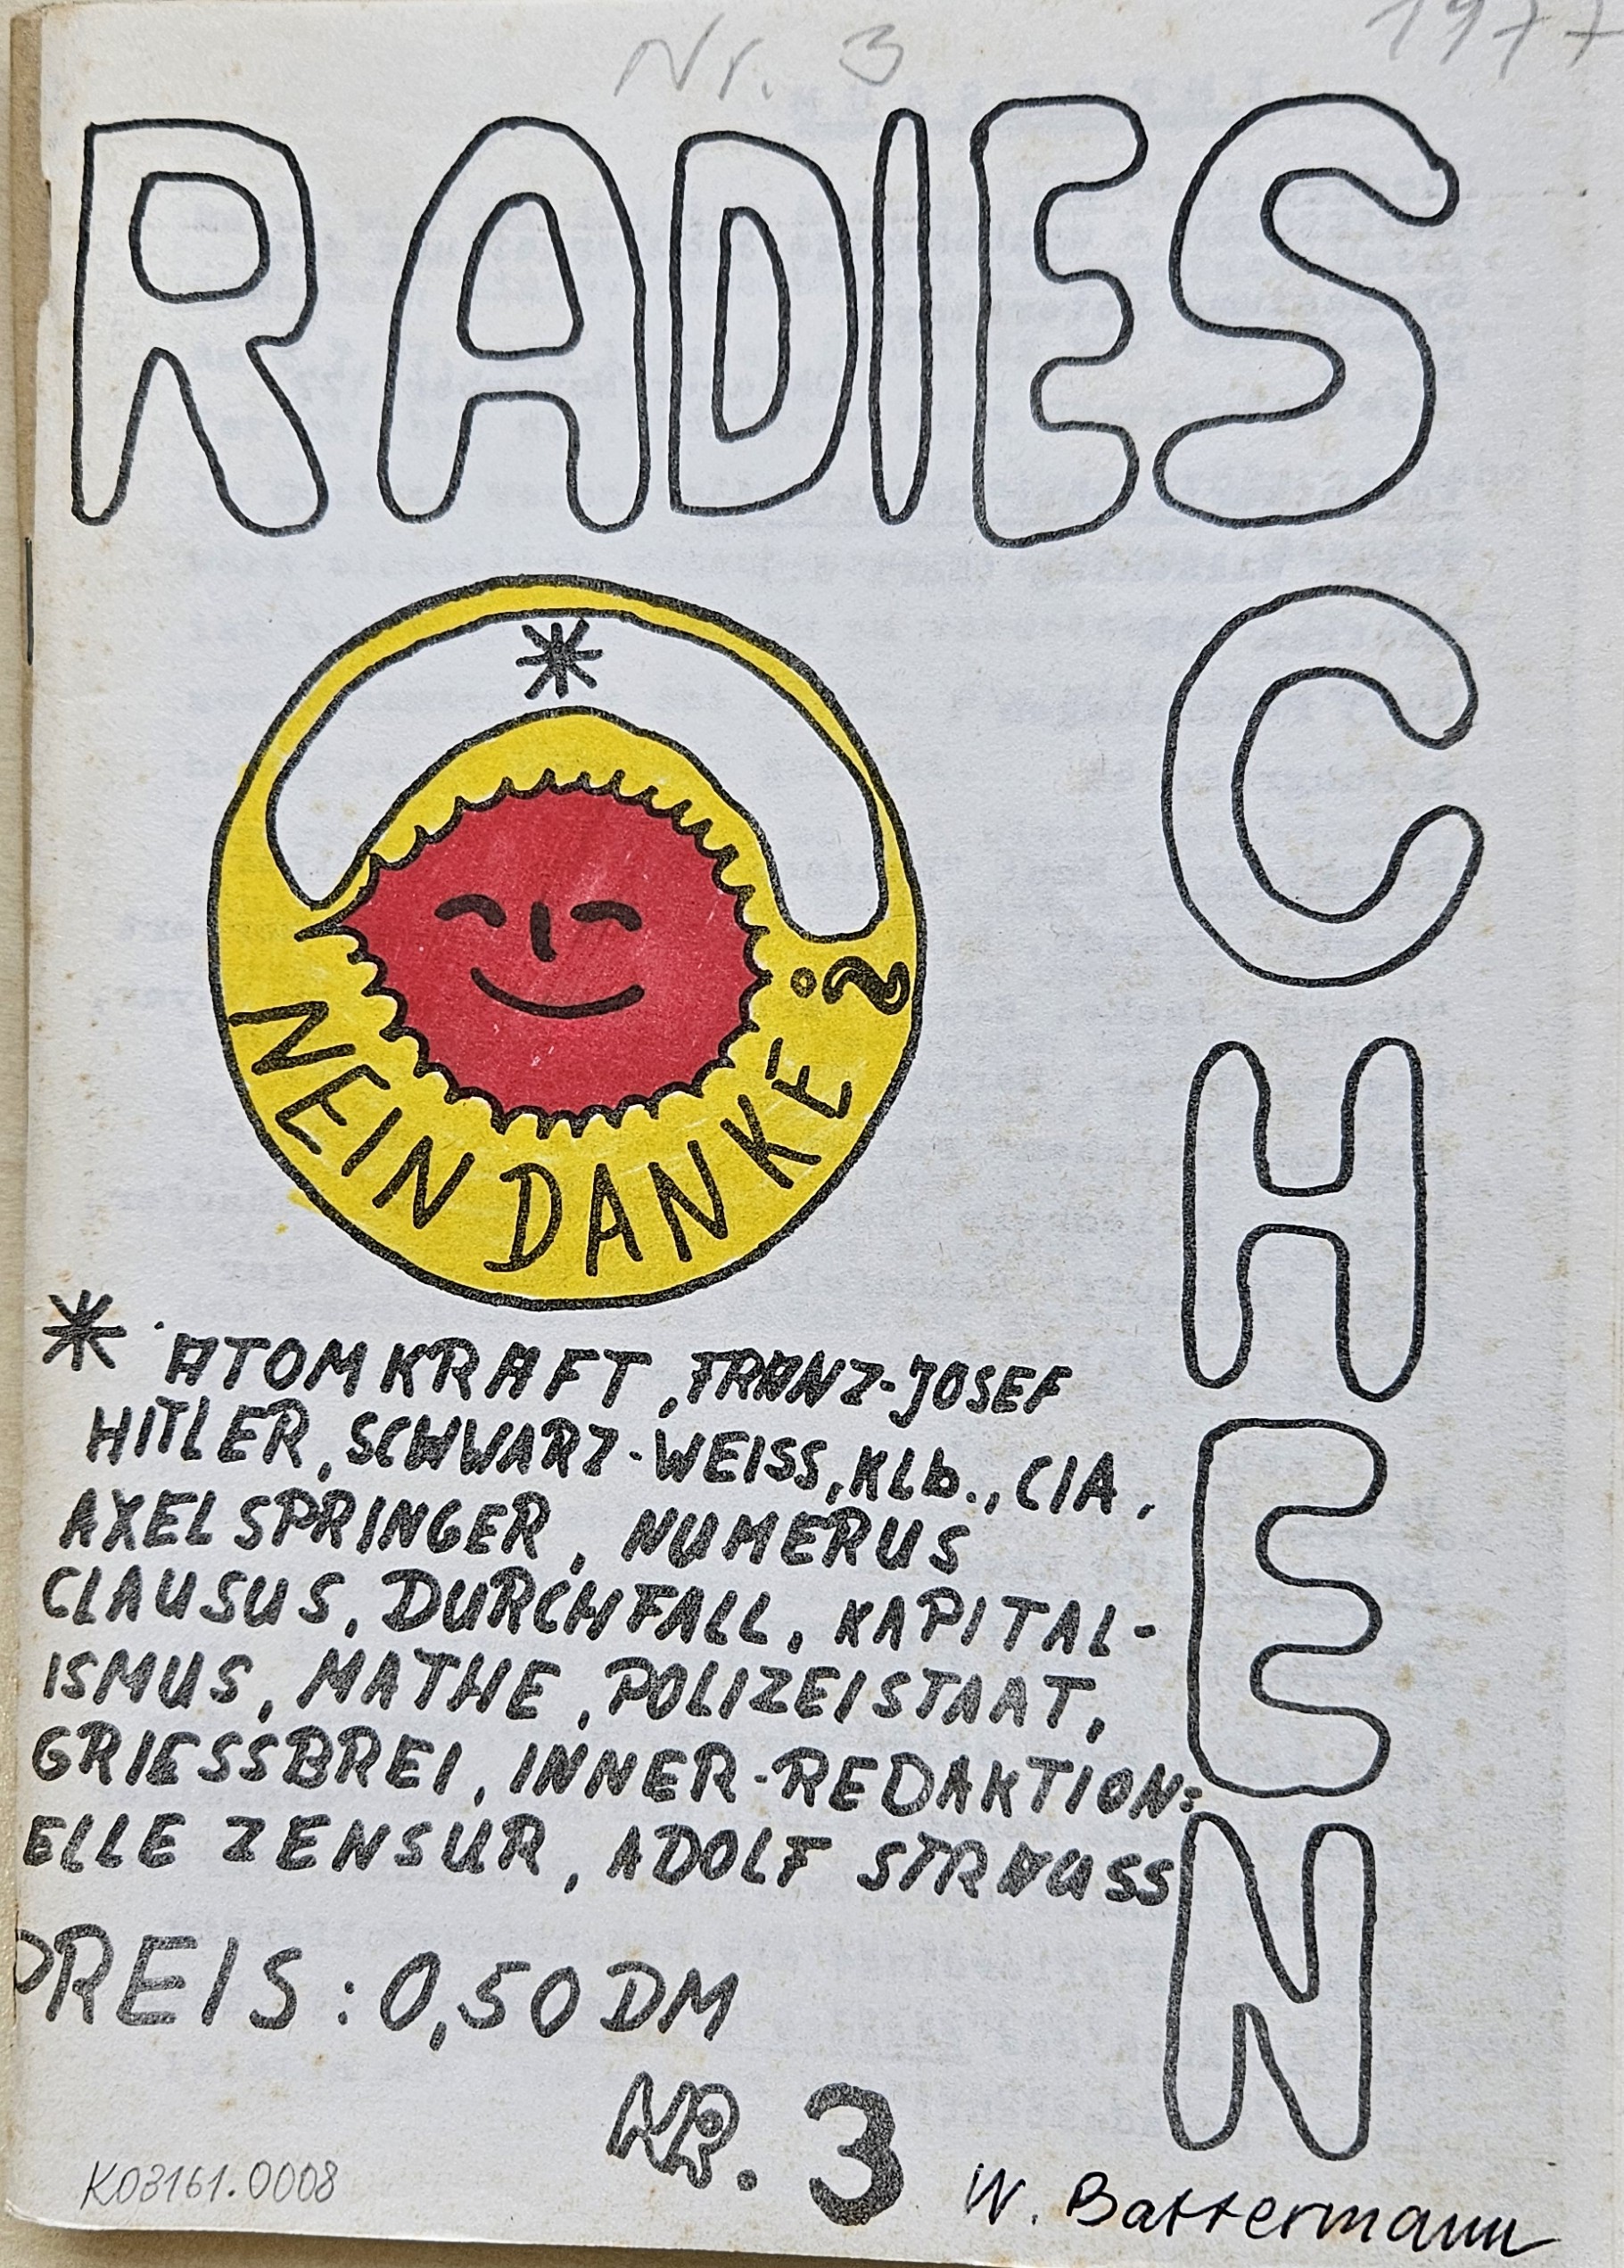 Nr. 3
1977
RADIES
CHEN
*
NEIN DANKE?
* ATOMKRAFT, FRANZ-JOSEF
HITLER, SCHWARZ-WEISS, Klb., CIA,
AXEL SPRINGER, NUMERUS
CLAUSUS, DURCHFALL, KAPITAL-
ISMUS, MATHE, POLIZEISTAAT,
GRIESSBREI, INNER-REDAKTION:
ELLE ZENSUR, ADOLF STRAUSS
PREIS: 0,50 DM
NR. 3
K03161.0008
W. Battermann